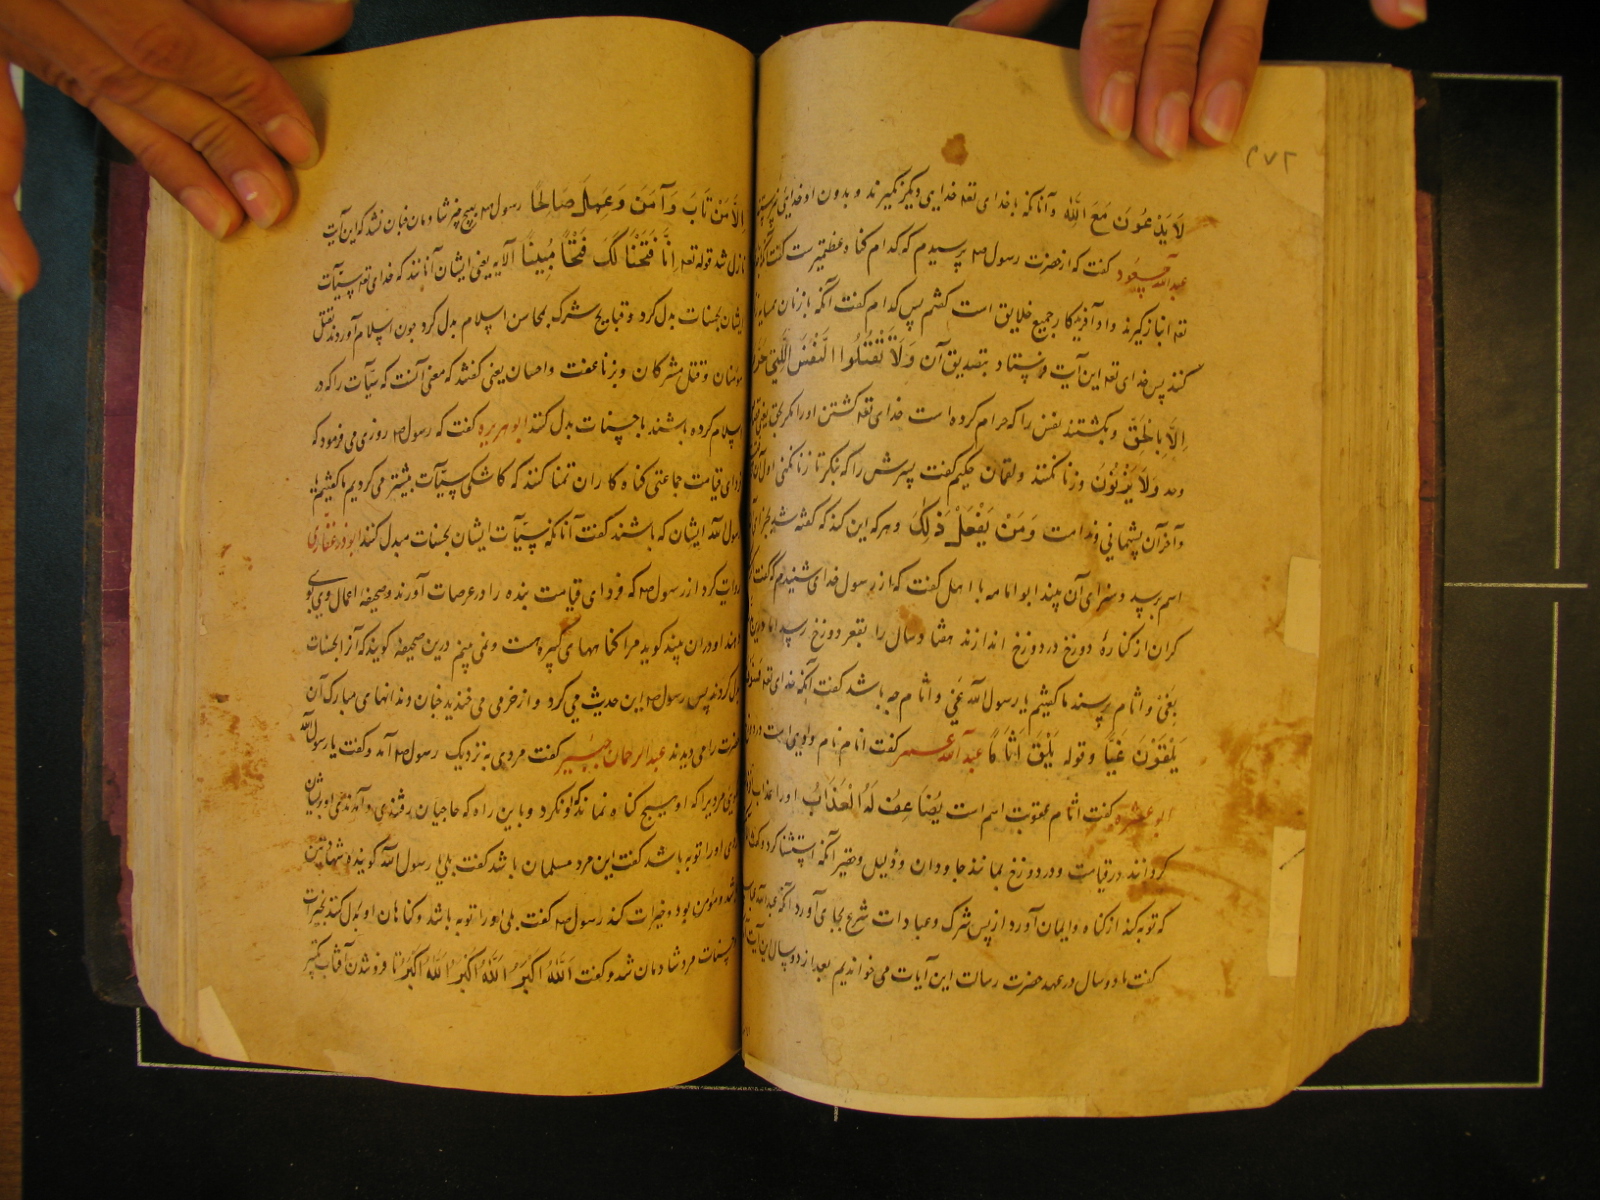 ۴۷۲
لَا يَدْعُونَ مَعَ اللهِ وآنانکه با خدای تعه خدایی دیگر نگیرند و بدون او خدایی نپرستند
عبدالله مسعود گفت که از حضرت رسول صم پرسیدم که کدام گناه عظیمترست گفت آنکه با خدای
تعه انباز گیرند و او آفریدگار جمیع خلایق است گفتم پس کدام گفت آنکه با زنان همسایه زنا
کنند پس خدای تعه این آیت فرستاد بتصدیق آن وَلَا تَقْتُلُوا النَّفْسَ الَّتِي حَرَّمَ
اِلَّا بِالْحَقِّ ونکشتند نفس را که حرام کرده است خدای تعه کشتن او را مگر بحق یعنی
وَلَا يَزْنُونَ وزنا نکنند ولقمان حکیم گفت پسرش را که بنگر تا زنا نکنی اول آن
وآخر آن پشیمانی وندامت وَمَنْ يَفْعَلْ ذٰلِكَ وهرکه این کند که گفته شد بجزای
اسم برسد وسزای آن بیند ابو امامه باهلی گفت که از رسول خدای شنیدم که گفت
کران از کناره دوزخ در دوزخ اندازند هفتاد سال را بقعر دوزخ رسد اما درین
بغی و اثام برسند ما گفتیم یا رسول الله غی و اثام چه باشد گفت آنکه خدای تعه فَسَوْفَ
يَلْقَوْنَ غَيًّا وقوله يَلْقَ اَثَامًا عبدالله عمر گفت اثام نام وادی است در دوزخ
ابو عبیده گفت اثام عقوبت اسم است يُضَاعِفْ لَهُ الْعَذَابُ او را عذاب
گردانند در قیامت ودر دوزخ بماند جاودان وذلیل وحقیر آنکه استثنا کرد وگفت
که توبه کند از گناه وایمان آورد از پس شرک وعبادات شرع بجای آورد آنکه عبدالله عباس
گفت ما دو سال در عهد حضرت رسالت این آیات می‌خواندیم بعد از دو سال این آیت
اِلَّا مَنْ تَابَ وَآمَنَ وَعَمِلَ صَالِحًا رسول صم بهیچ چیز شادمان چنان نشد که این آیت
نازل شد قوله تعه اِنَّا فَتَحْنَا لَكَ فَتْحًا مُبِينًا الآیه یعنی ایشان آنانند که خدای تعه سیّآت
ایشان بحسنات بدل کرد وقبایح شرک بمحاسن اسلام بدل کرد چون اسلام آوردند بقتل
مؤمنان وقتل مشرکان وبزنا عفت واحسان یعنی گفتند که معنی آنست که سیّآت را که در
اسلام کرده باشند با حسنات بدل کنند ابو هریره گفت که رسول صم روزی می‌فرمود که
فردای قیامت جماعتی گناه کاران تمنا کنند که کاشکی سیّآت بیشتر می‌کردیم ما گفتیم یا
رسول الله ایشان که باشند گفت آنانکه سیّآت ایشان بحسنات مبدل کنند ابوذر غفاری
روایت کرد از رسول صم که فردای قیامت بنده را در عرصات آورند وصحیفه اعمال وی بوی
دهند او در آن بیند گوید مرا گناههای کبیره است ونمی بینم درین صحیفه گویند که آنرا بحسنات
بدل کردند پس رسول صم این حدیث می‌کرد و از خرمی می‌خندید چنان دندانهای مبارک آن
حضرت را می‌دیدند عبدالرحمان جبیر گفت مردی به نزدیک رسول صم آمد وگفت یا رسول الله
مردیرا که او هیچ گناه نماند که او نکرد و باین راه که حاجیان رفتندی و آمدندی او بریشان
او را توبه باشد گفت این مرد مسلمان باشد گفت بلی یا رسول الله گوینده شهادتین
باشد ومؤمن بود وخیرات کند رسول صم گفت بلی او را توبه باشد وگناهان او بدل کند بخیرات
وحسنات مرد شادمان شد وگفت اَللهُ اَكْبَرُ اَللهُ اَكْبَرُ اَللهُ اَكْبَرُ تا فروشدن آفتاب تکبیر